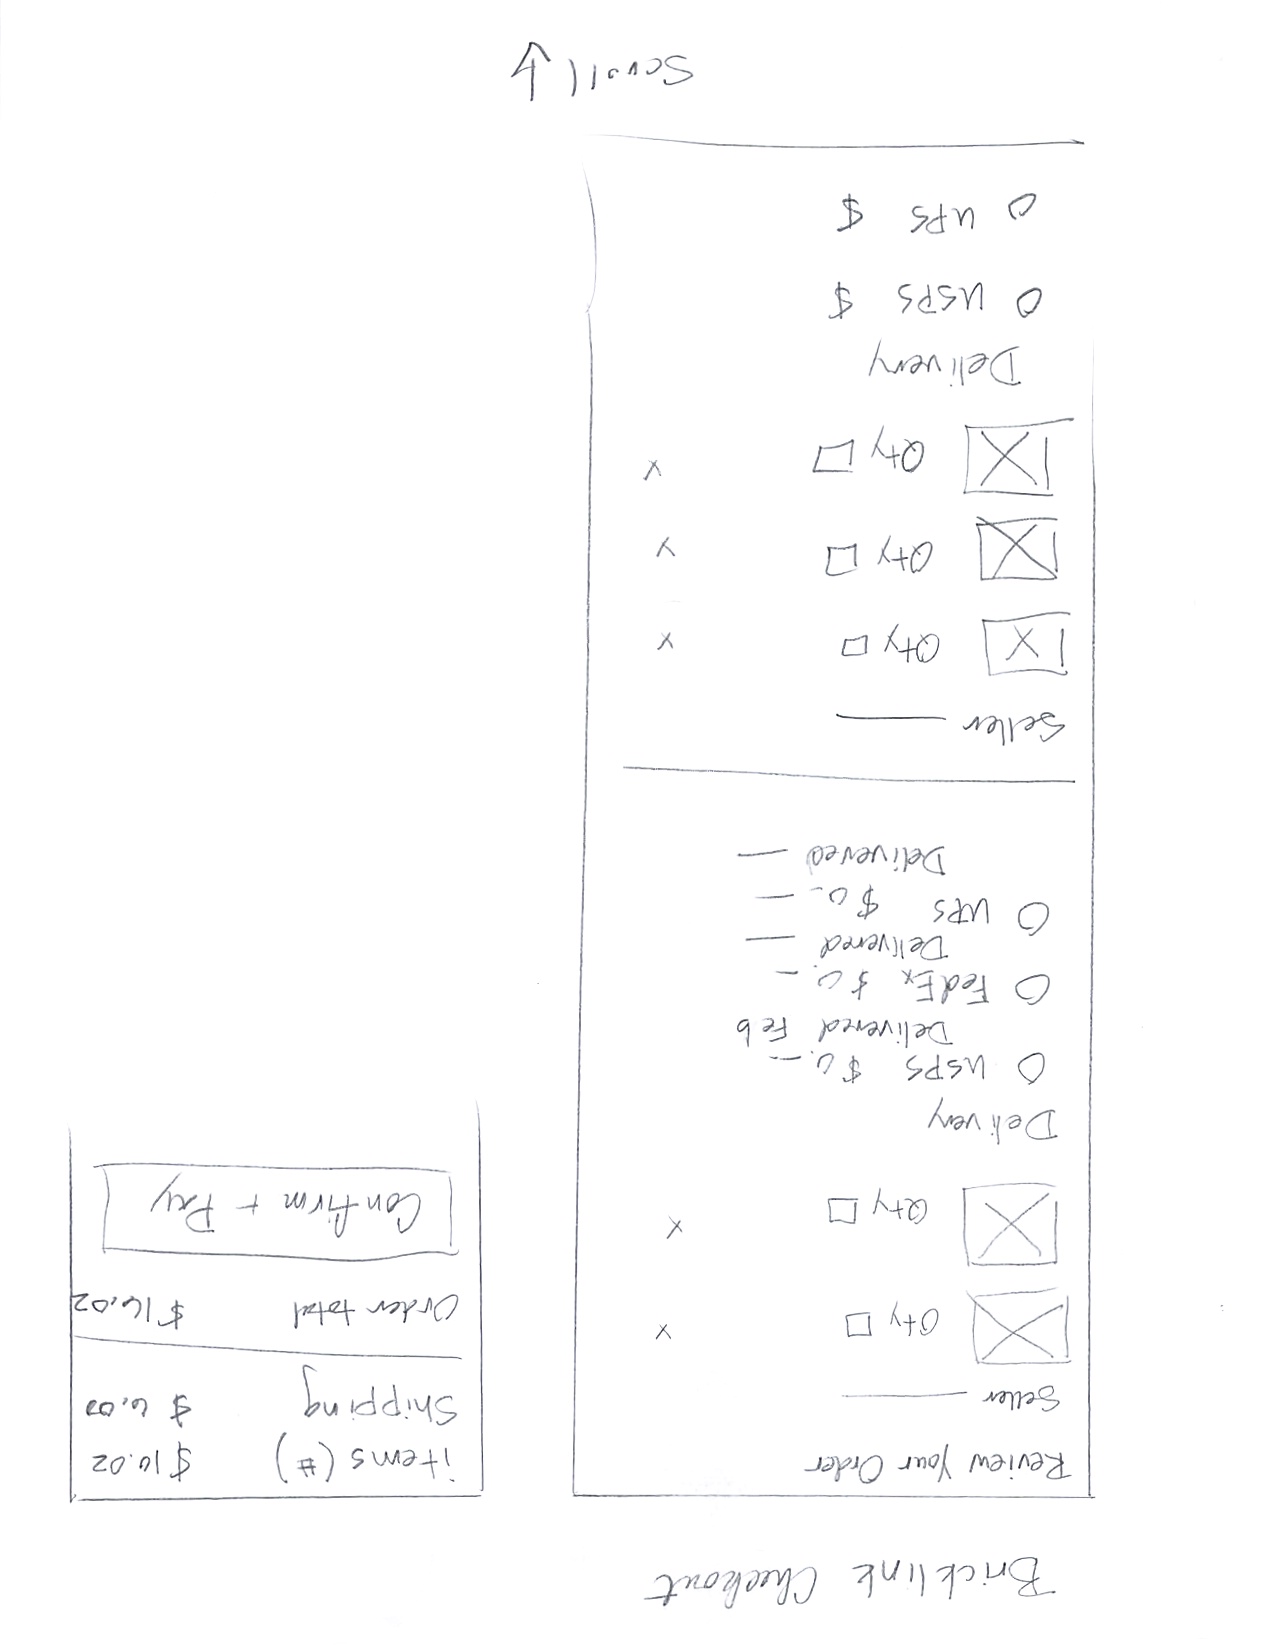 Bricklink Checkout
Review Your Order
Seller
Qty X
Qty X
Delivery
USPS $0.
Delivered Feb
FedEx $0.
Delivered
UPS $0.
Delivered
Seller
Qty X
Qty X
Qty X
Delivery
USPS $
UPS $
items (#) $10.02
Shipping $6.00
Order total $16.02
Confirm + Pay
Scroll ↓